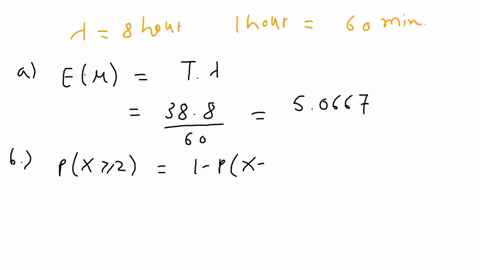 λ = 8 hour 1 hour = 60 min.
a) E(μ) = T. λ
= 38.8 / 60 = 5.0667
b.) P(X ≥ 2) = 1 - P(X-